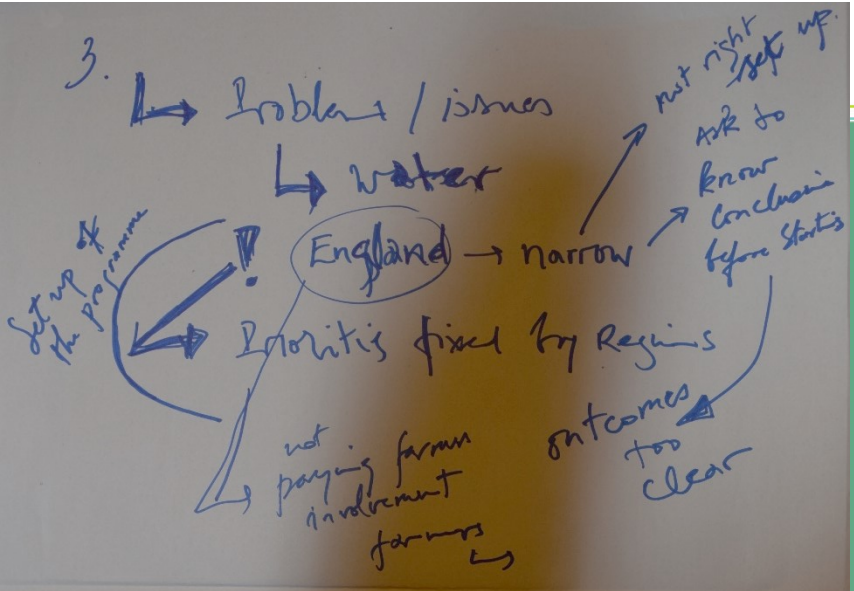 3.
Problems / issues
water
England → narrow
not right
set up.
Ask to
know
conclusions
before starting
outcomes
too
clear
!
Set up of
the programme
Prioritis fixed by Regions
not
paying farmers
involvement
farmers